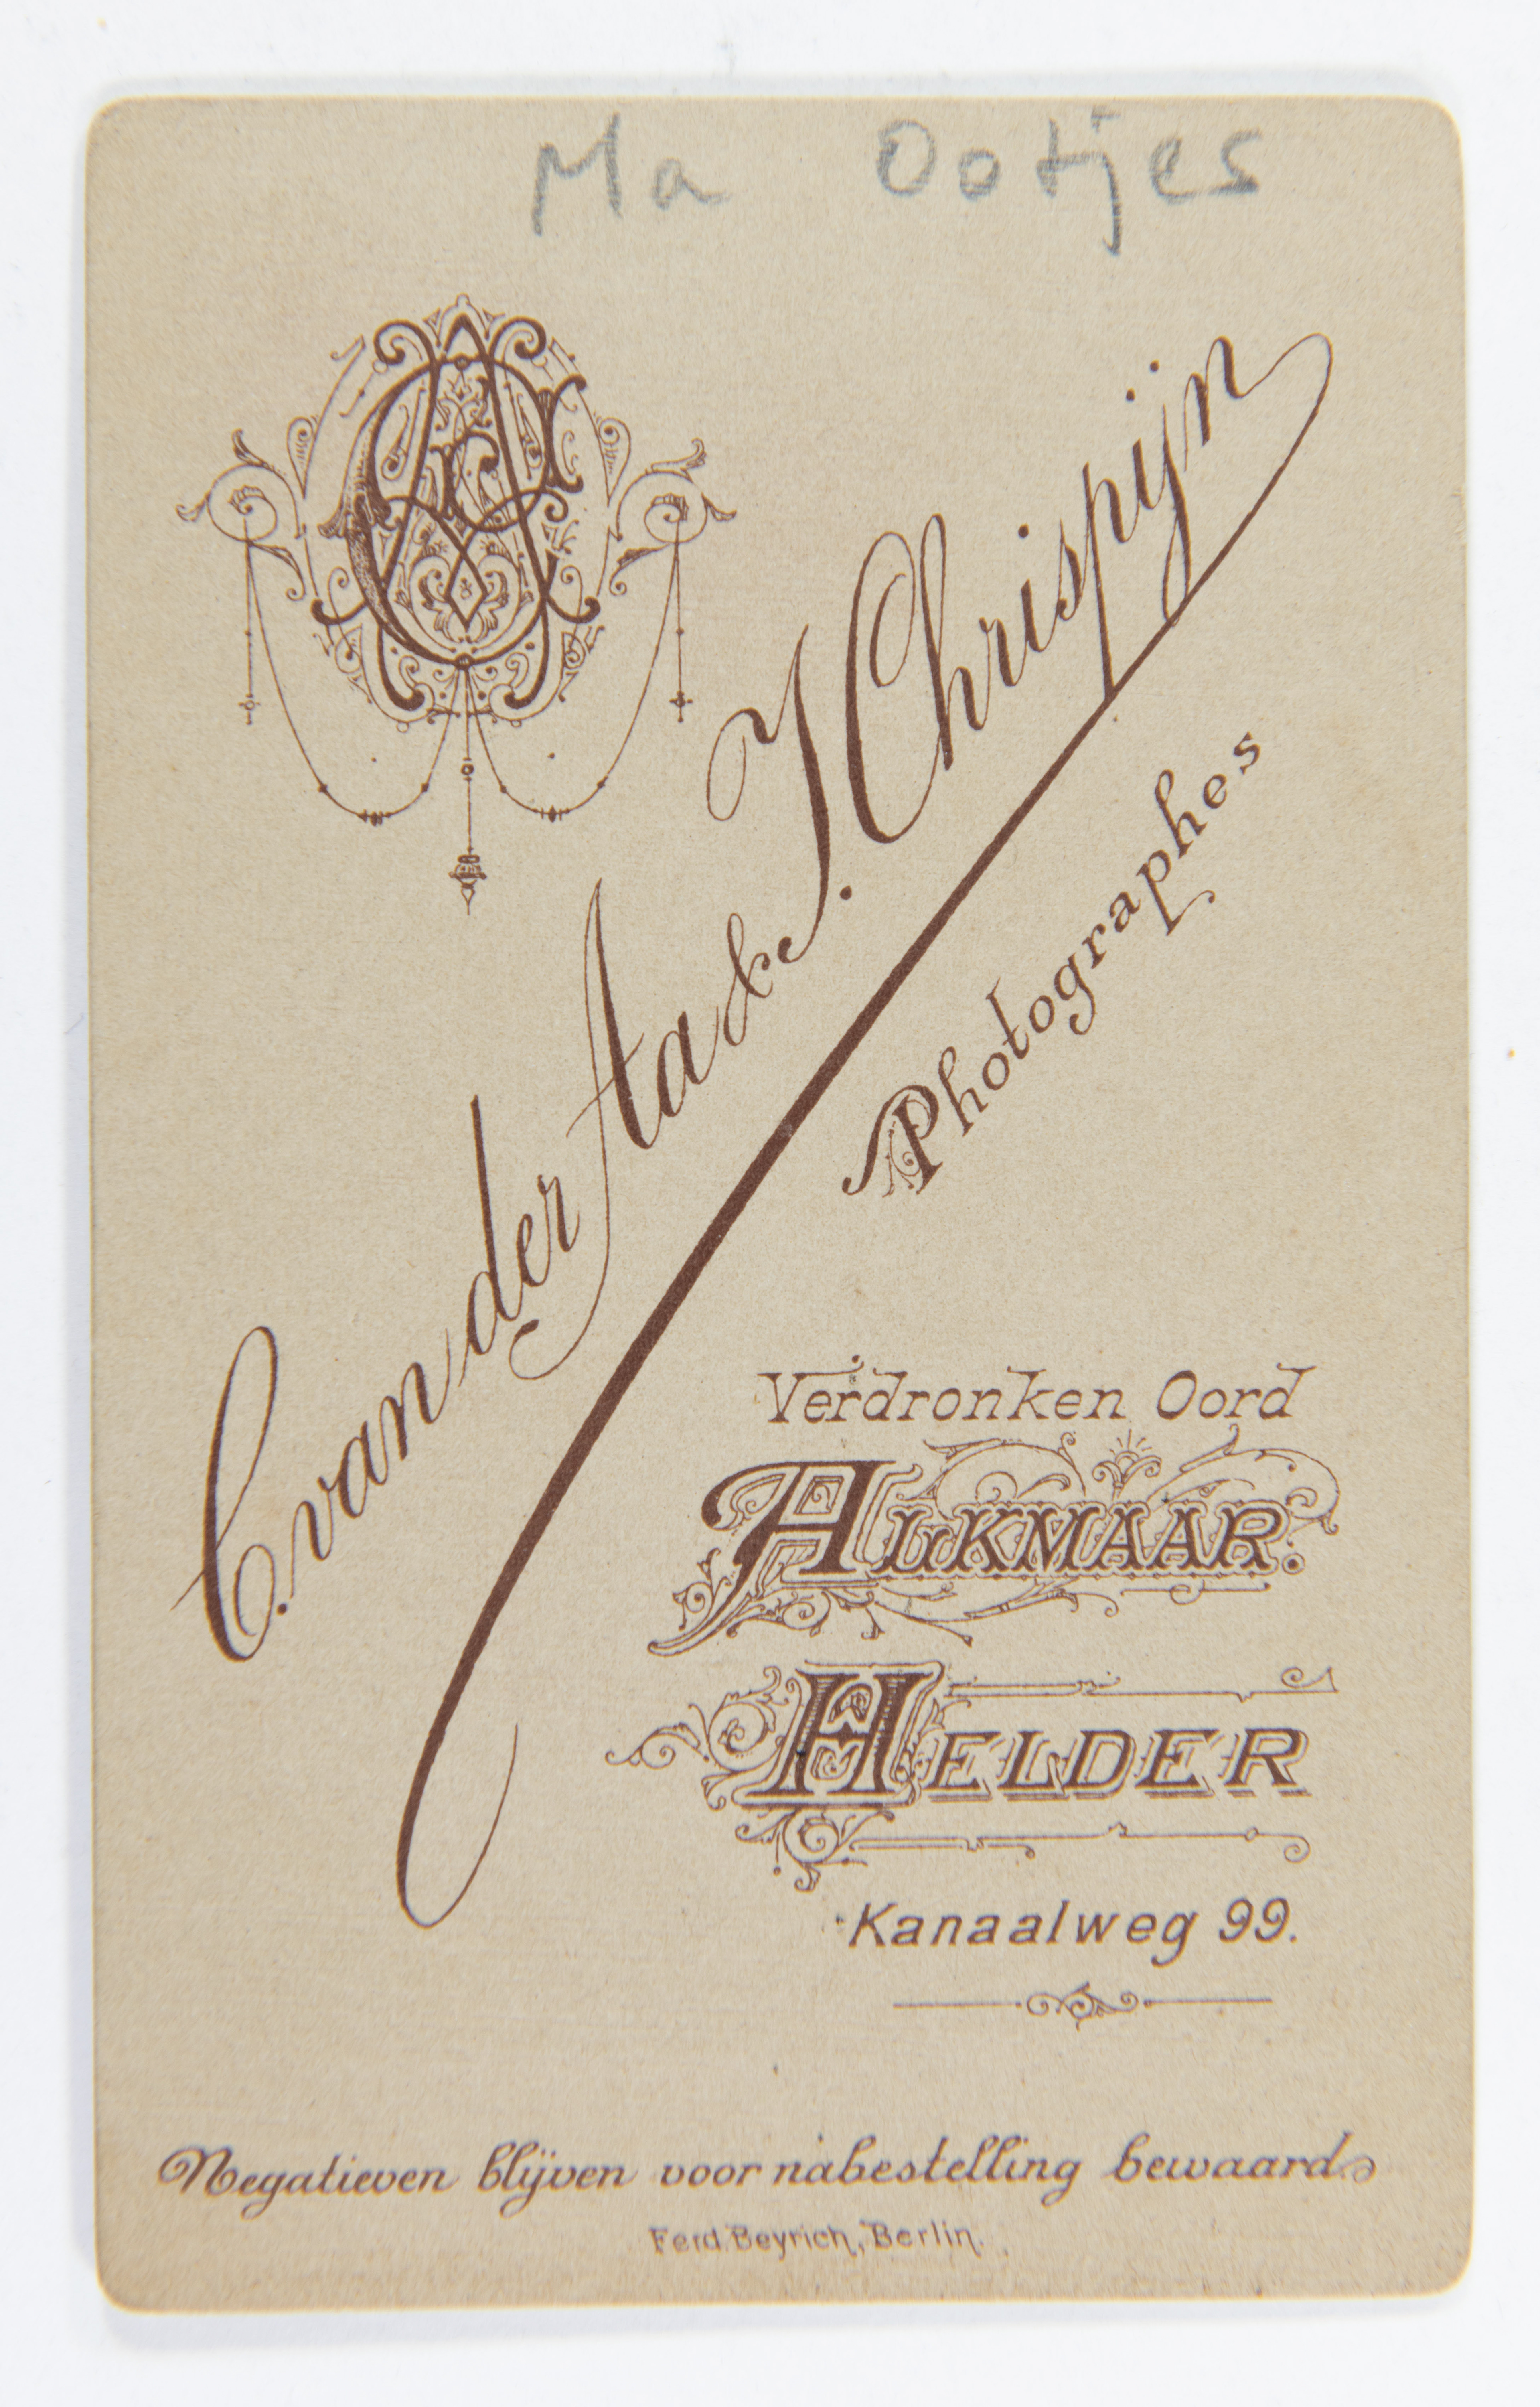 Ma Ootjes
C. van der Aa & J. Chrispijn
Photographes
Verdronken Oord
ALKMAAR.
HELDER
Kanaalweg 99.
Negatieven blijven voor nabestelling bewaard
Ferd. Beyrich, Berlin.